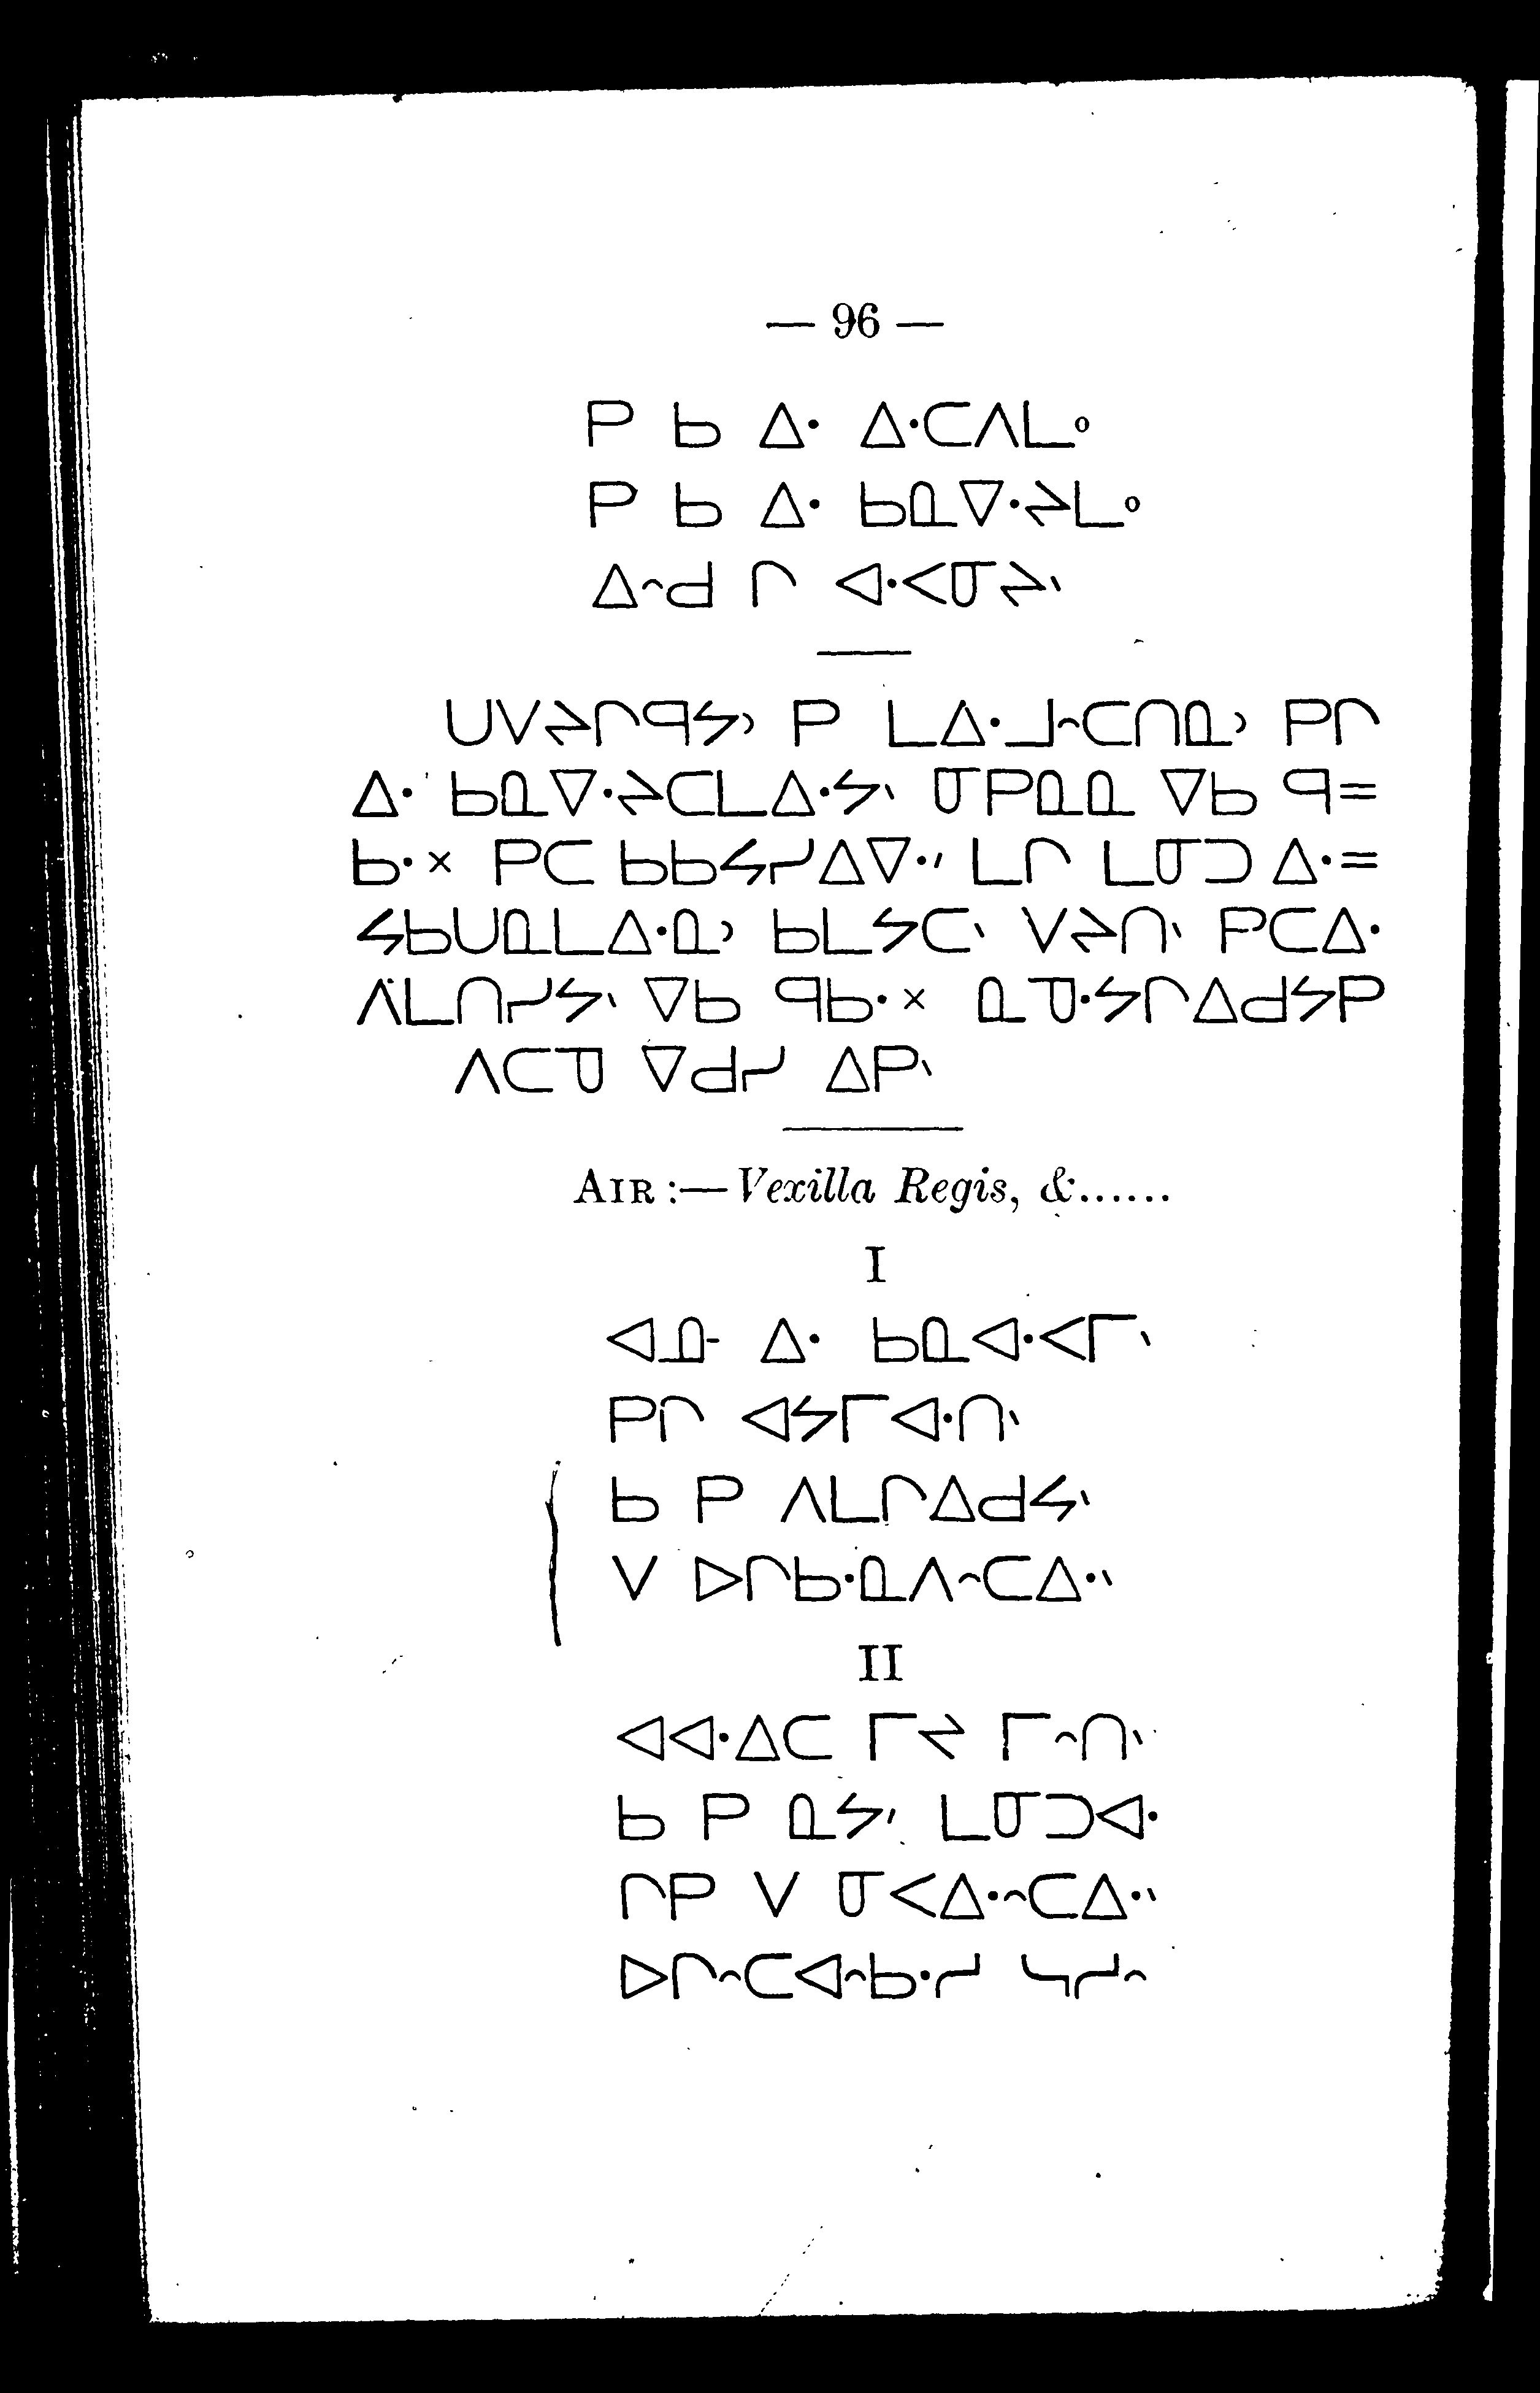 — 96 —
ᑭ ᑲ ᐃᐧ ᐃᐧᑕᐱᒪᐤ
ᑭ ᑲ ᐃᐧ ᑲᓇᐁᐧᔨᒪᐤ
ᐃᐢᑯ ᒋ ᐊᐧᐸᓂᔨᐠ
ᑌᐯᔨᒋᑫᔭᐣ ᑭ ᒪᐃᐧᒧᐢᑕᑎᓇᐣ ᑭᒋ
ᐃᐧ ᑲᓇᐁᐧᔨᑕᒪᐃᐧᔭᐠ ᓂᑭᓇᓇ ᐁᑲ ᑫ=
ᑲᐧ᙮ ᑭᑕ ᑲᑲᔦᓯᐃᐁᐧᐟ ᒪᒋ ᒪᓂᑐ ᐃᐧ=
ᔦᑲᑌᓇᒪᐃᐧᓇᐣ ᑲᒪᔭᑕᐠ ᐯᔨᑎᐠ ᑭᑕᐃᐧ
ᐱᒪᑎᓯᔭᐠ ᐁᑲ ᑫᑲᐧ᙮ ᓇ ᓄᐧᔭᒋᐃᑯᔭᑭ
ᐱᑕᓄ ᐁᑯᓯ ᐃᑭᐠ
AIR :— Vexilla Regis, &......
I
ᐊᓀᐨ ᐃᐧ ᑲᓇᐊᐧᐸᒥᐠ
ᑭᒋ ᐊᔭᒥᐊᐧᑎᐠ
ᑲ ᑭ ᐱᒪᒋᐃᑯᔦᐠ
ᐯ ᐅᒋᑲᐧᓇᐱᐢᑕᐃᐧᐠ
II
ᐊᐊᐧᐃᑕ ᒥᔪ ᒥᐢᑎᐠ
ᑲ ᑭ ᓇᔭᐟ ᒪᓂᑐᐊᐧ
ᒋᑭ ᐯ ᓂᐸᐃᐧᐢᑕᐃᐧᐠ
ᐅᒋᐢᑕᐊᐢᑲᐧᓯ ᓭᓯᐢ